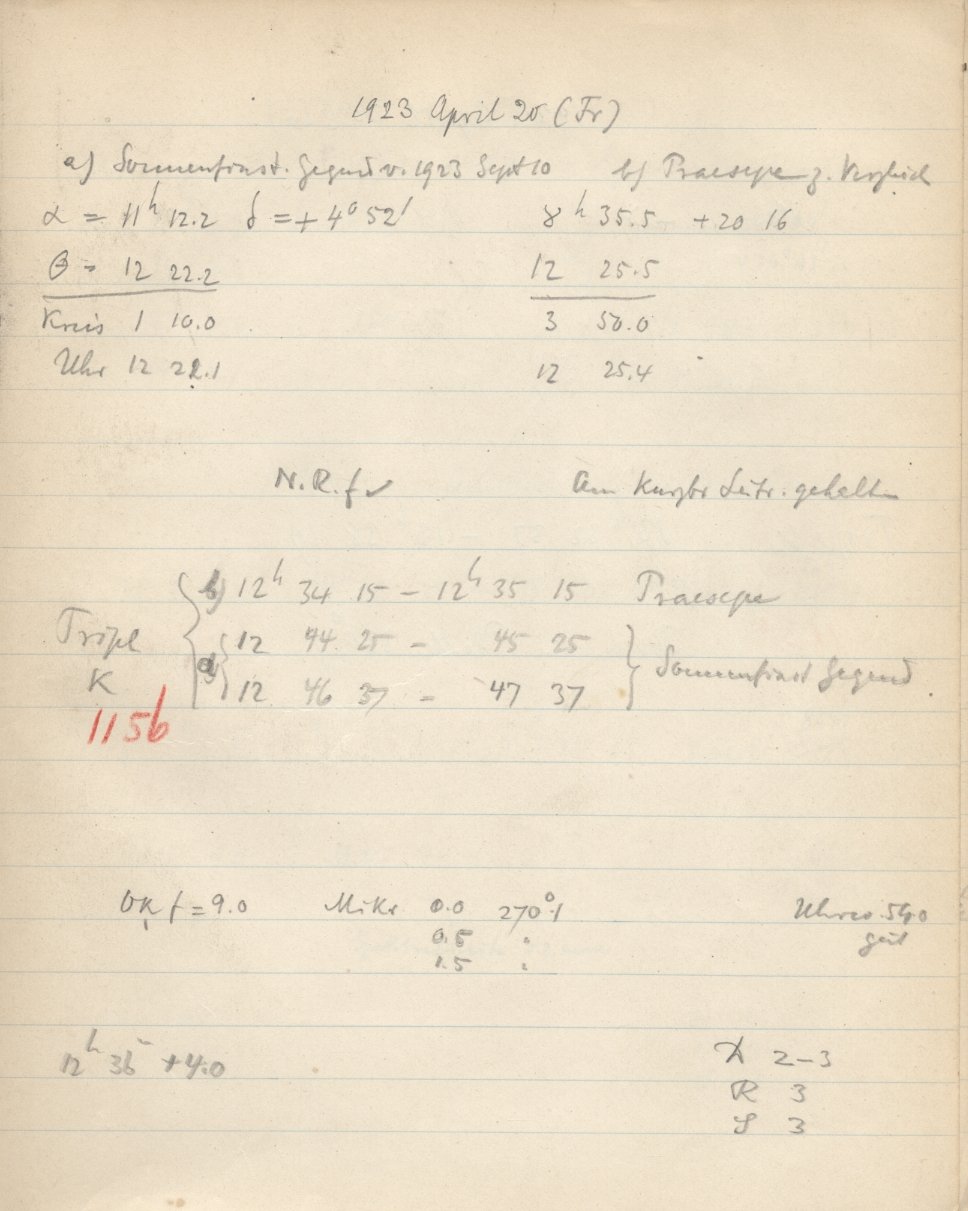 1923 April 20 (Fr)
a) Sonnenfinst. Gegend v. 1923 Sept 10 b) Praesepe z. Vergleich
α = 11h 12.2 δ = + 4° 52' 8h 35.5 +20 16
θ = 12 22.2 12 25.5
Kreis 1 10.0 3 50.0
Uhr 12 22.1 12 25.4
N.R.f. Am gehalten
b) 12h 34 15 – 12h 35 15 Praesepe
Tripl 12 44 25 – 45 25
K a) Sonnenfinst Gegend
12 46 37 – 47 37
1156
f = 9.0 Mikr 0.0 270°.1
0.5 "
gut
1.5 "
12h 36 + 4.0
2–3
R 3
S 3